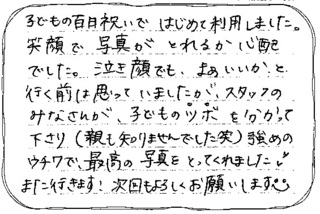 子どもの百日祝いで はじめて利用しました。
笑顔で 写真が とれるか 心配
でした。泣き顔でも、まぁいいか、と
行く前は思っていましたが、スタッフの
みなさんが、子どものツボを分かって
下さり（親も知りませんでした笑）強めの
ウチワで、最高の写真をとってくれました
また行きます！次回もよろしくお願いします